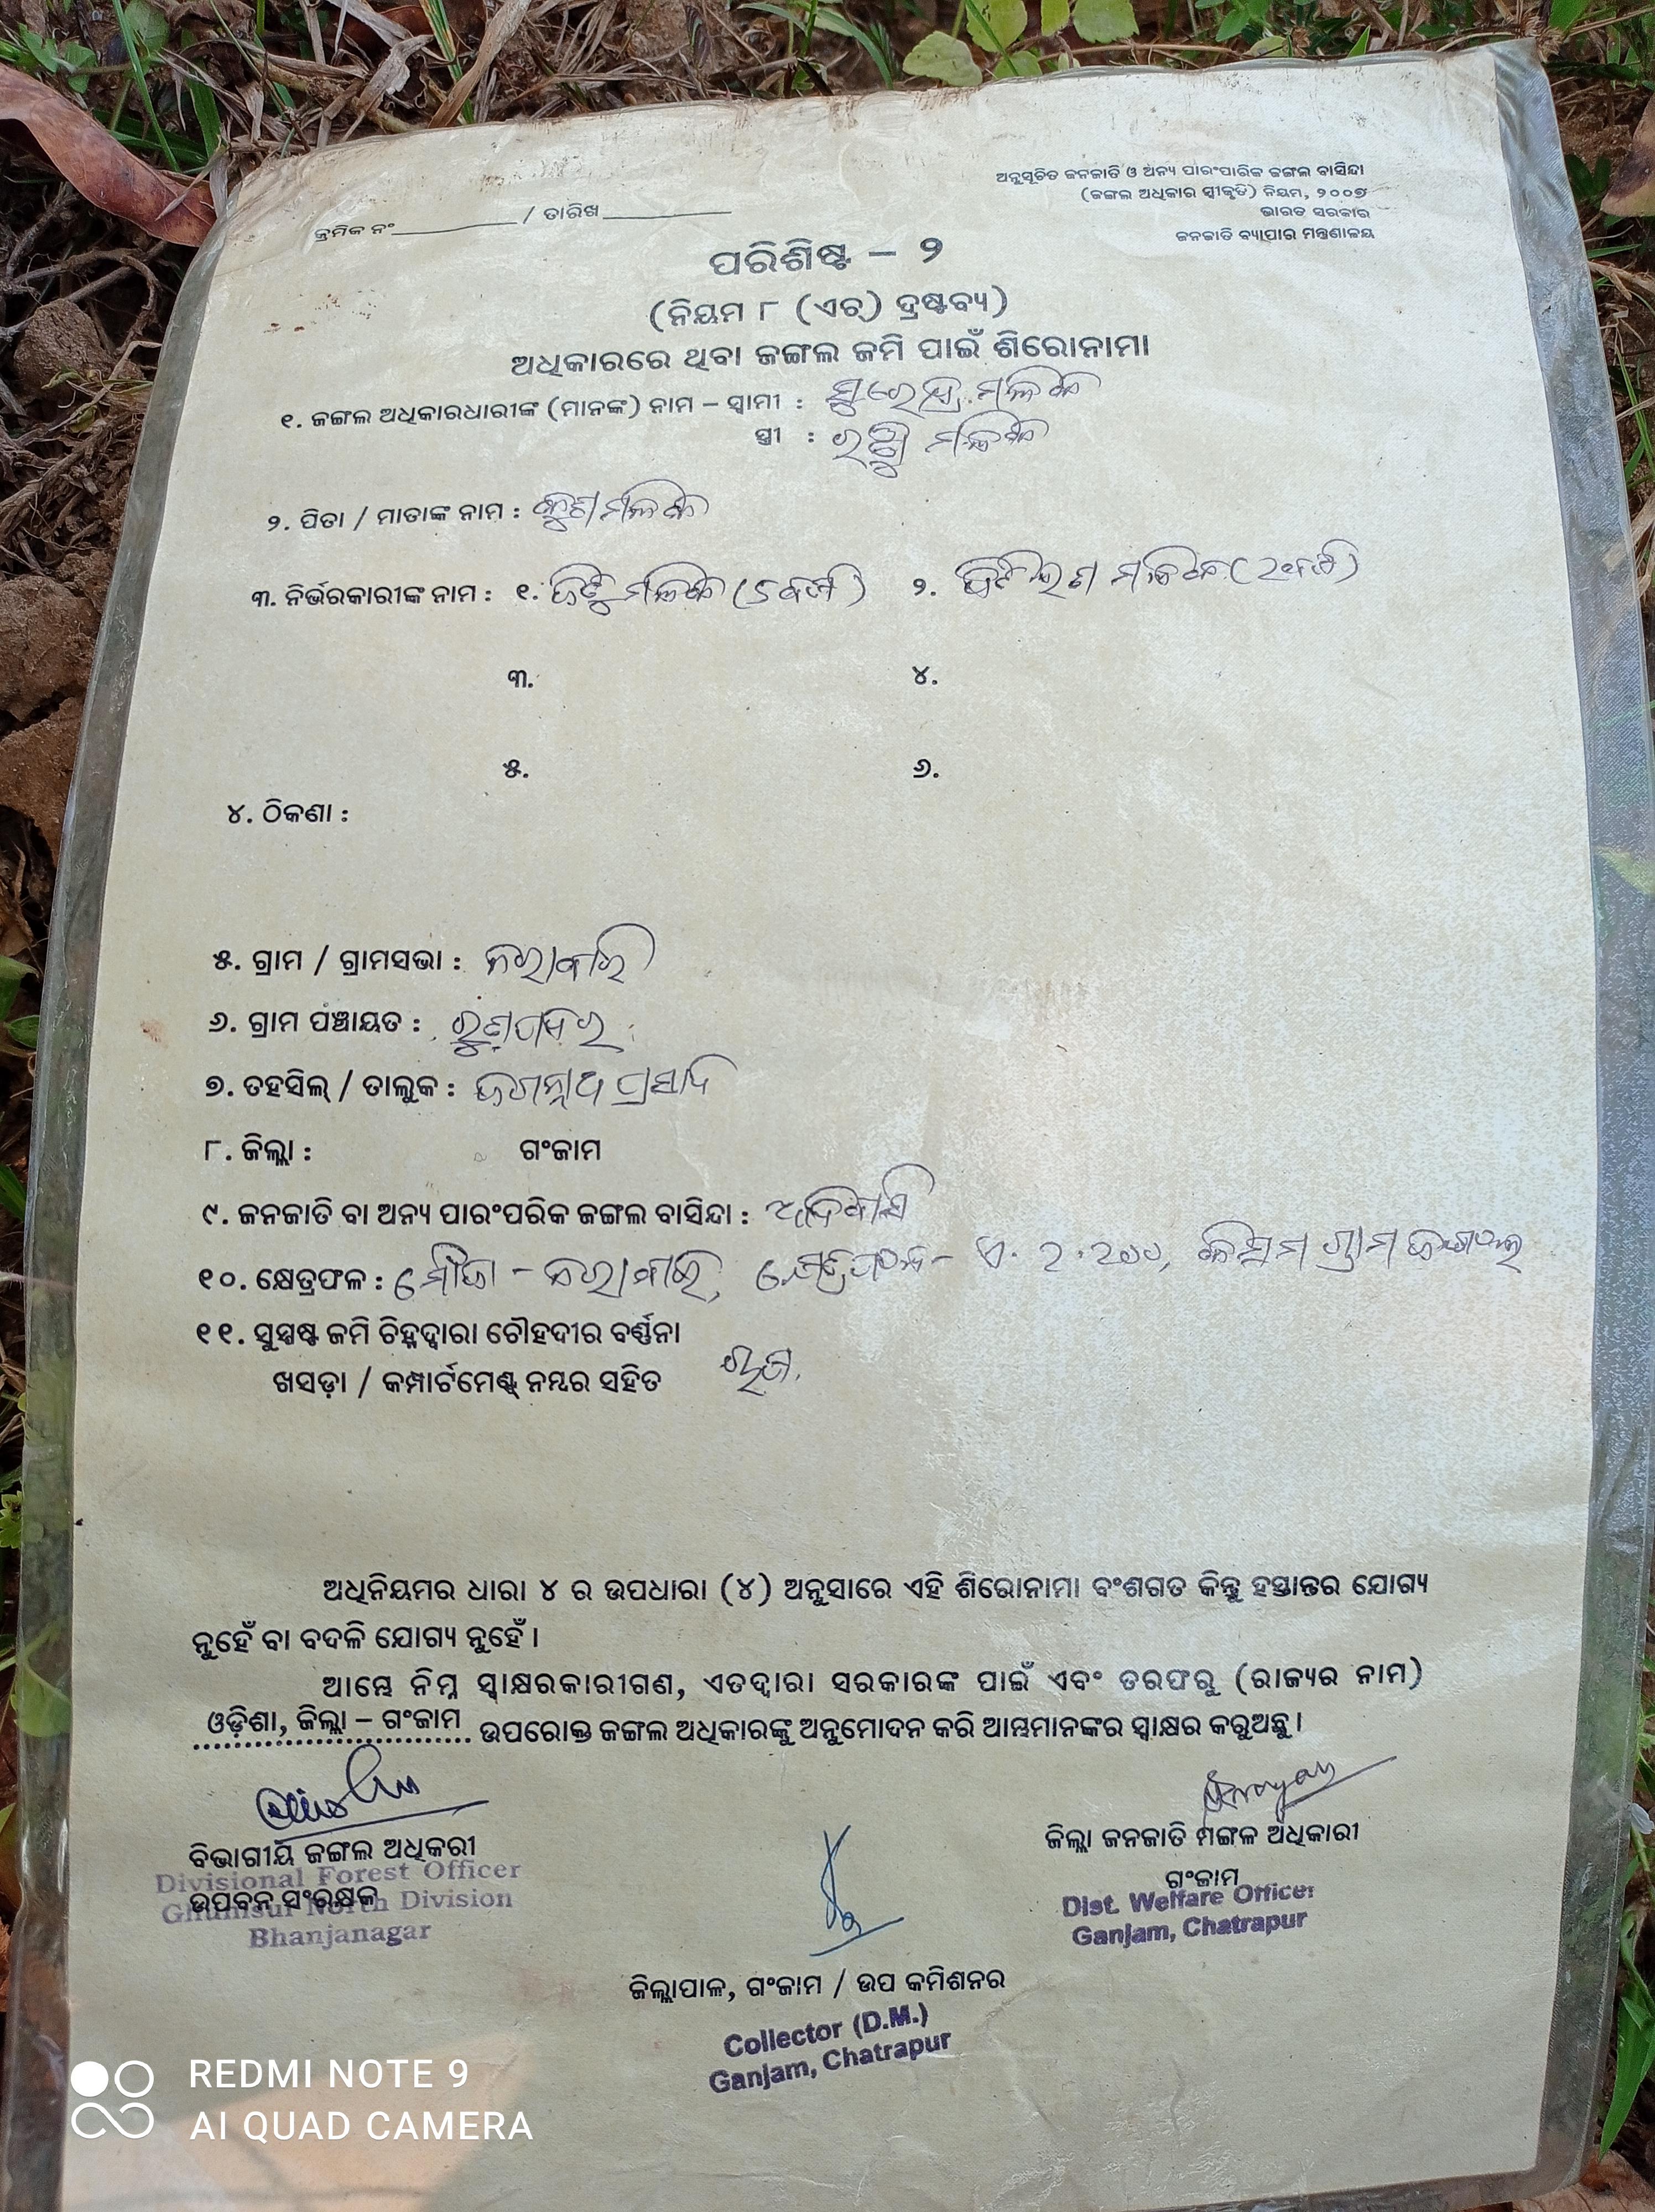 ଅନୁସୂଚିତ ଜନଜାତି ଓ ଅନ୍ୟ ପାରଂପାରିକ ଜଙ୍ଗଲ ବାସିନ୍ଦା
(ଜଙ୍ଗଲ ଅଧିକାର ସ୍ୱୀକୃତି) ନିୟମ, ୨୦୦୭
ଭାରତ ସରକାର
ଜନଜାତି ବ୍ୟାପାର ମନ୍ତ୍ରଣାଳୟ
କ୍ରମିକ ନଂ__________ / ତାରିଖ__________
ପରିଶିଷ୍ଟ – ୨
(ନିୟମ ୮ (ଏଚ୍) ଦ୍ରଷ୍ଟବ୍ୟ)
ଅଧିକାରରେ ଥିବା ଜଙ୍ଗଲ ଜମି ପାଇଁ ଶିରୋନାମା
୧. ଜଙ୍ଗଲ ଅଧିକାରଧାରୀଙ୍କ (ମାନଙ୍କ) ନାମ – ସ୍ୱାମୀ : ସୁରେନ୍ଦ୍ର ମଲିକ
ସ୍ତ୍ରୀ : ମଲିକ
୨. ପିତା / ମାତାଙ୍କ ନାମ : ମଲିକ
୩. ନିର୍ଭରକାରୀଙ୍କ ନାମ : ୧. ମଲିକ ୨. ମଲିକ
୩. ୪.
୫. ୬.
୪. ଠିକଣା :
୫. ଗ୍ରାମ / ଗ୍ରାମସଭା :
୬. ଗ୍ରାମ ପଞ୍ଚାୟତ :
୭. ତହସିଲ୍ / ତାଲୁକ : ଜଗନ୍ନାଥ ପ୍ରସାଦ
୮. ଜିଲ୍ଲା : ଗଂଜାମ
୯. ଜନଜାତି ବା ଅନ୍ୟ ପାରଂପରିକ ଜଙ୍ଗଲ ବାସିନ୍ଦା : ଆଦିବାସି
୧୦. କ୍ଷେତ୍ରଫଳ : ମୌଜା – କିସମ ଗ୍ରାମ ଜଙ୍ଗଲ
୧୧. ସୁସ୍ପଷ୍ଟ ଜମି ଚିହ୍ନଦ୍ୱାରା ଚୌହଦୀର ବର୍ଣ୍ଣନା
ଖସଡ଼ା / କମ୍ପାର୍ଟମେଣ୍ଟ୍ ନମ୍ବର ସହିତ
ଅଧିନିୟମର ଧାରା ୪ ର ଉପଧାରା (୪) ଅନୁସାରେ ଏହି ଶିରୋନାମା ବଂଶଗତ କିନ୍ତୁ ହସ୍ତାନ୍ତର ଯୋଗ୍ୟ
ନୁହେଁ ବା ବଦଳି ଯୋଗ୍ୟ ନୁହେଁ ।
ଆମ୍ଭେ ନିମ୍ନ ସ୍ୱାକ୍ଷରକାରୀଗଣ, ଏତଦ୍ୱାରା ସରକାରଙ୍କ ପାଇଁ ଏବଂ ତରଫରୁ (ରାଜ୍ୟର ନାମ)
ଓଡ଼ିଶା, ଜିଲ୍ଲା – ଗଂଜାମ ଉପରୋକ୍ତ ଜଙ୍ଗଲ ଅଧିକାରଙ୍କୁ ଅନୁମୋଦନ କରି ଆମ୍ଭମାନଙ୍କର ସ୍ୱାକ୍ଷର କରୁଅଛୁ ।
ବିଭାଗୀୟ ଜଙ୍ଗଲ ଅଧିକରୀ
Divisional Forest Officer
ଉପବନ ସଂରକ୍ଷକ
Ghumsur North Division
Bhanjanagar
ଜିଲ୍ଲା ଜନଜାତି ମଙ୍ଗଳ ଅଧିକାରୀ
ଗଂଜାମ
Dist. Welfare Officer
Ganjam, Chatrapur
ଜିଲ୍ଲାପାଳ, ଗଂଜାମ / ଉପ କମିଶନର
Collector (D.M.)
Ganjam, Chatrapur
REDMI NOTE 9
AI QUAD CAMERA